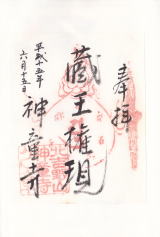 奉拝
蔵王権現
平成十五年
六月十五日
神童寺